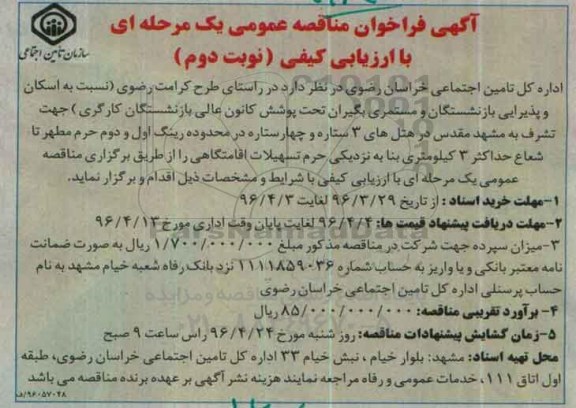 آگهی فراخوان مناقصه عمومی یک مرحله ای
با ارزیابی کیفی (نوبت دوم)
سازمان تأمین اجتماعی
اداره کل تامین اجتماعی خراسان رضوی در نظر دارد در راستای طرح کرامت رضوی (نسبت به اسکان
و پذیرایی بازنشستگان و مستمری بگیران تحت پوشش کانون عالی بازنشستگان کارگری) جهت
تشرف به مشهد مقدس در هتل های ۳ ستاره و چهارستاره در محدوده رینگ اول و دوم حرم مطهر تا
شعاع حداکثر ۳ کیلومتری بنا به نزدیکی حرم تسهیلات اقامتگاهی را از طریق برگزاری مناقصه
عمومی یک مرحله ای با ارزیابی کیفی با شرایط و مشخصات ذیل اقدام و برگزار نماید.
۱-مهلت خرید اسناد : از تاریخ ۹۶/۳/۲۹ لغایت ۹۶/۴/۳
۲-مهلت دریافت پیشنهاد قیمت ها: ۹۶/۴/۴ لغایت پایان وقت اداری مورخ ۹۶/۴/۱۳
۳-میزان سپرده جهت شرکت در مناقصه مذکور مبلغ ۱/۷۰۰/۰۰۰/۰۰۰ ریال به صورت ضمانت
نامه معتبر بانکی و یا واریز به حساب شماره ۱۱۱۱۸۵۹۰۳۶ نزد بانک رفاه شعبه خیام مشهد به نام
حساب پرسنلی اداره کل تامین اجتماعی خراسان رضوی
۴- برآورد تقریبی مناقصه: ۸۵/۰۰۰/۰۰۰/۰۰۰ ریال
۵-زمان گشایش پیشنهادات مناقصه: روز شنبه مورخ ۹۶/۴/۲۴ راس ساعت ۹ صبح
محل تهیه اسناد: مشهد: بلوار خیام ، نبش خیام ۳۳ اداره کل تامین اجتماعی خراسان رضوی، طبقه
اول اتاق ۱۱۱، خدمات عمومی و رفاه مراجعه نمایند هزینه نشر آگهی بر عهده برنده مناقصه می باشد
۹۶۰۵۷۰۲۸/ف